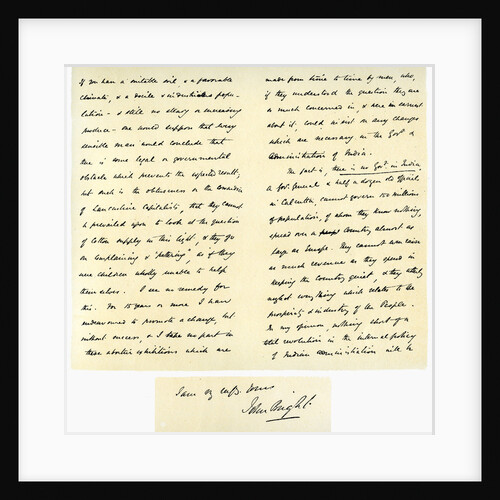 If you have a suitable soil & a favorable
climate, & a docile & industrious popu-
lation - & still no steady or increasing
produce - one would suppose that every
sensible man would conclude that
there is some legal or governmental
obstacle which prevents the expected result;
but such is the obtuseness or the cowardice
of Lancashire Capitalists, that they cannot
be prevailed upon to look at the question
of Cotton supply in this light, & they go
on complaining & "petering", as if they
were children wholly unable to help
themselves. I see no remedy for
this. For 10 years or more I have
endeavoured to promote a change, but
without success, & I take no part in
these abortive exhibitions which are
made from time to time by men, who,
if they understood the question they are
so much concerned in, & were in earnest
about it, could insist on any changes
which are necessary in the Govt &
administration of India.
The fact is, there is no Govt in India,
a Govr General & half a dozen old officials
in Calcutta, cannot govern 150 millions
of population, of whom they know nothing,
spread over a country almost as
large as Europe. They cannot even raise
as much revenue as they spend in
keeping the Country quiet, & they utterly
neglect everything which relates to the
prosperity & industry of the People.
In my opinion, nothing short of a
revolution in the internal policy
of Indian administration will be
I am yours
John Bright.